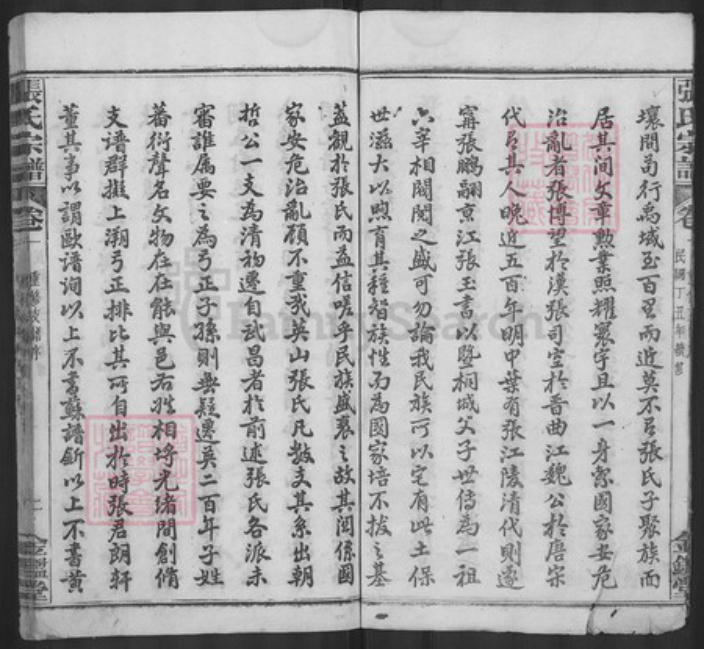 壤間苟行禹域至百里而近莫不有張氏子聚族而
居其间文章勲業照耀寰宇且以一身繫國家安危
治亂者張博望於漢張司空於晋曲江魏公於唐宋
代有其人晚近五百年明中葉有張江陵清代則遂
甯張鵬翮京江張玉書以暨桐城父子世傳為一祖
六宰相閥閱之盛可勿論我民族可以宅有此土保
世滋大以煦育其種智族性而為國家培不拔之基
蓋觀於張氏而益信嗟乎民族盛衰之故其関係國
家安危治亂顧不重哉英山張氏凡數支其系出朝
哲公一支為清初遷自武昌者於前述張氏各派未
審誰属要之為弓正子孫則無疑遷英二百年子姓
蕃衍聲名文物在在能與邑右姓相埒光绪間創脩
支谱群擬上溯弓正排比其所自出於時張君朗軒
董其事以謂歐谱洵以上不書蘇譜釿以上不書黄
張氏宗譜
卷一
重修支譜序
金鑑堂
張氏宗譜
卷一
民國丁丑年續修
金鑑堂
FamilySearch